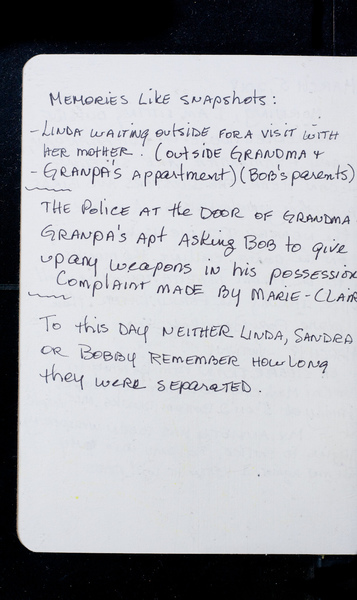 MEMORIES LIKE SNAPSHOTS:
- LINDA WAITING OUTSIDE FOR A VISIT WITH
HER MOTHER. (OUTSIDE GRANDMA +
- GRANPA'S APPARTMENT) (BOB'S PARENTS)
THE POLICE AT the DOOR OF GRANDMA
GRANPA'S APT ASKING BOB to give
up any weapons in his possession
Complaint MADE By MARIE-CLAIR
To this DAY NEITHER LINDA, SANDRA
OR BOBBY REMEMBER HOW LONG
they WERE SEPARATED.